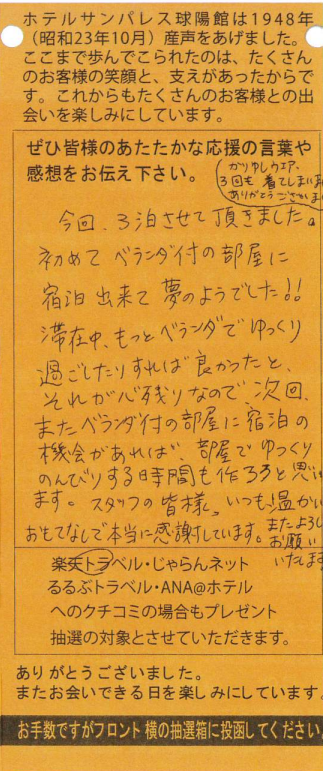 ホテルサンパレス球陽館は1948年
（昭和23年10月）産声をあげました。
ここまで歩んでこられたのは、たくさん
のお客様の笑顔と、支えがあったからで
す。これからもたくさんのお客様との出
会いを楽しみにしています。
ぜひ皆様のあたたかな応援の言葉や
感想をお伝え下さい。
かりゆしウエア、
3回も着てしまいま
ありがとうございま
今回、3泊させて頂きました。
初めてベランダ付の部屋に
宿泊出来て夢のようでした!!
滞在中、もっとベランダでゆっくり
過ごしたりすれば良かったと、
それが心残りなので、次回、
またベランダ付の部屋に宿泊の
機会があれば、部屋でゆっくり
のんびりする時間も作ろうと思い
ます。スタッフの皆様、いつも温かい
おもてなしで本当に感謝しています。
またよろし
お願い
いたします
楽天トラベル・じゃらんネット
るるぶトラベル・ANA@ホテル
へのクチコミの場合もプレゼント
抽選の対象とさせていただきます。
ありがとうございました。
またお会いできる日を楽しみにしています。
お手数ですがフロント横の抽選箱に投函してください。